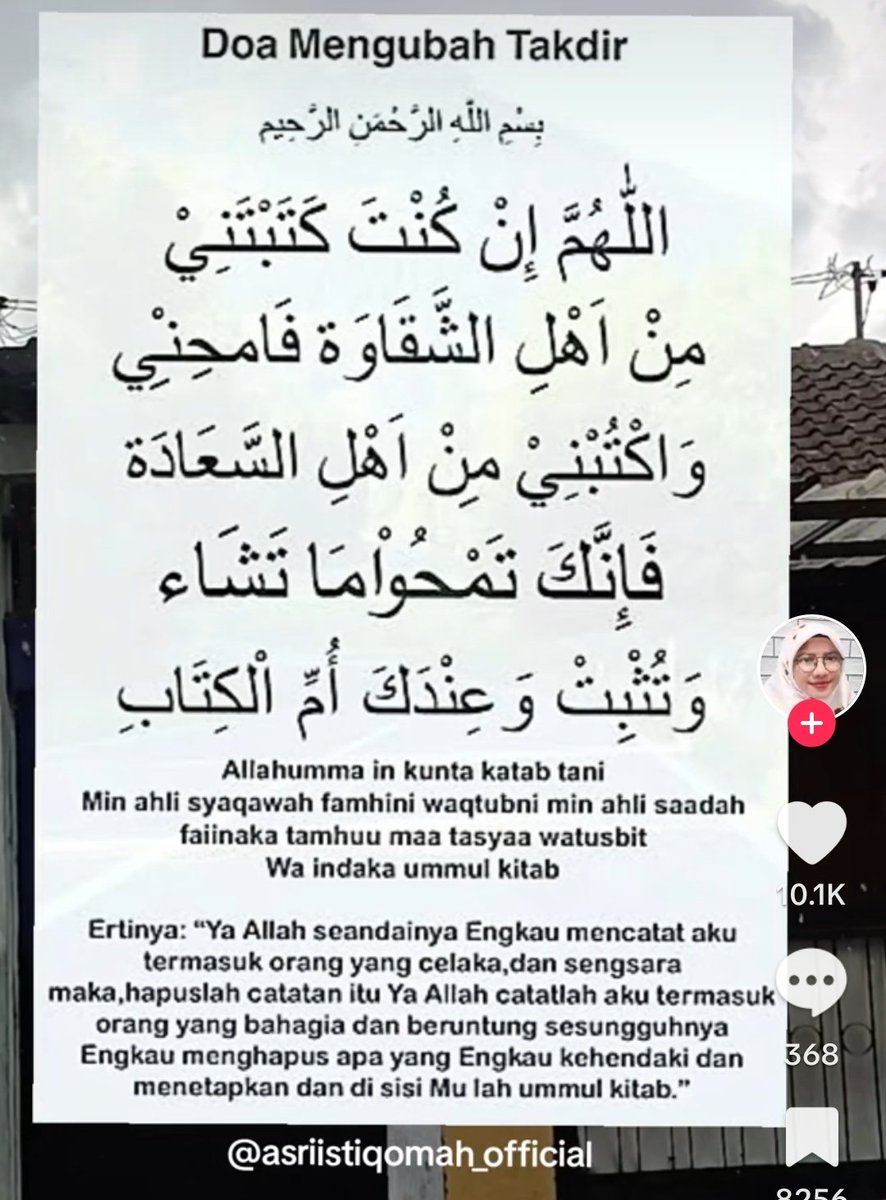 Doa Mengubah Takdir
بِسْمِ اللَّهِ الرَّحْمَنِ الرَّحِيم
اللّٰهُمَّ إِنْ كُنْتَ كَتَبْتَنِيْ
مِنْ اَهْلِ الشَّقَاوَة فَامحِنِْي
وَاكْتُبْنِيْ مِنْ اَهْلِ السَّعَادَة
فَإِنَّكَ تَمْحُواْمَا تَشَاء
وَتُثْبِتْ وَعِنْدَكَ أُمِّ الْكِتَابِ
Allahumma in kunta katab tani
Min ahli syaqawah famhini waqtubni min ahli saadah
faiinaka tamhuu maa tasyaa watusbit
Wa indaka ummul kitab
Ertinya: “Ya Allah seandainya Engkau mencatat aku
termasuk orang yang celaka,dan sengsara
maka,hapuslah catatan itu Ya Allah catatlah aku termasuk
orang yang bahagia dan beruntung sesungguhnya
Engkau menghapus apa yang Engkau kehendaki dan
menetapkan dan di sisi Mu lah ummul kitab.”
10.1K
368
8256
@asriistiqomah_official